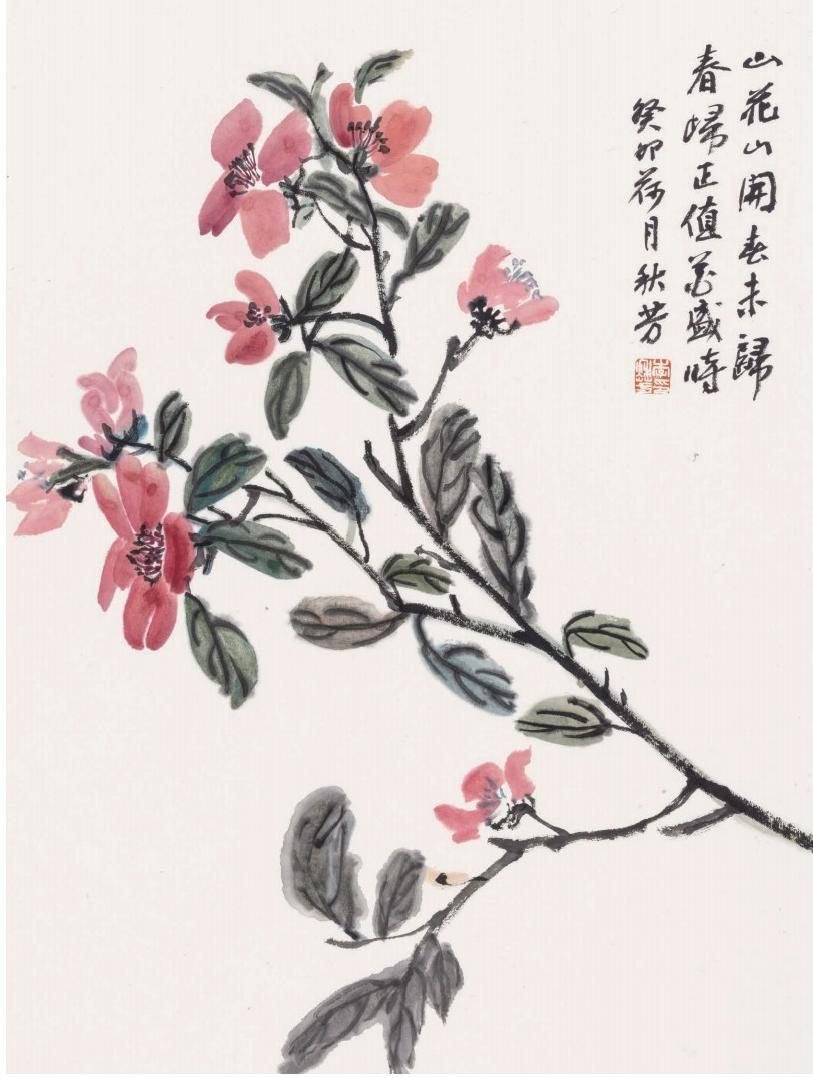 山花山開春未歸
春歸正值花盛時
癸卯荷月秋芳